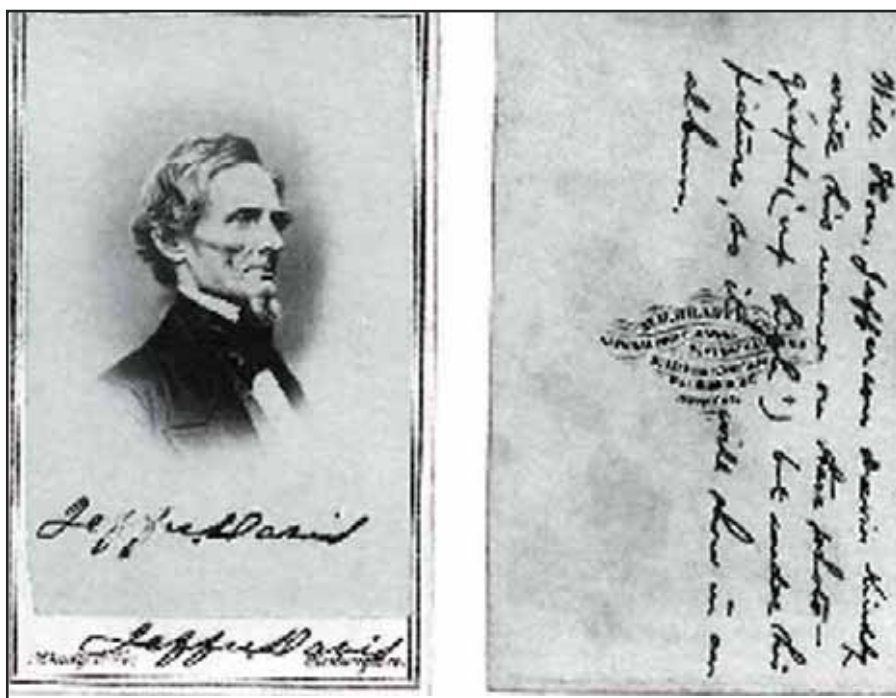 Jeffer Davis
Jeffer Davis
Will Hon. Jefferson Davis kindly
write his name on these photo-
graphs (up high) under his
picture, so it will show in an
album.